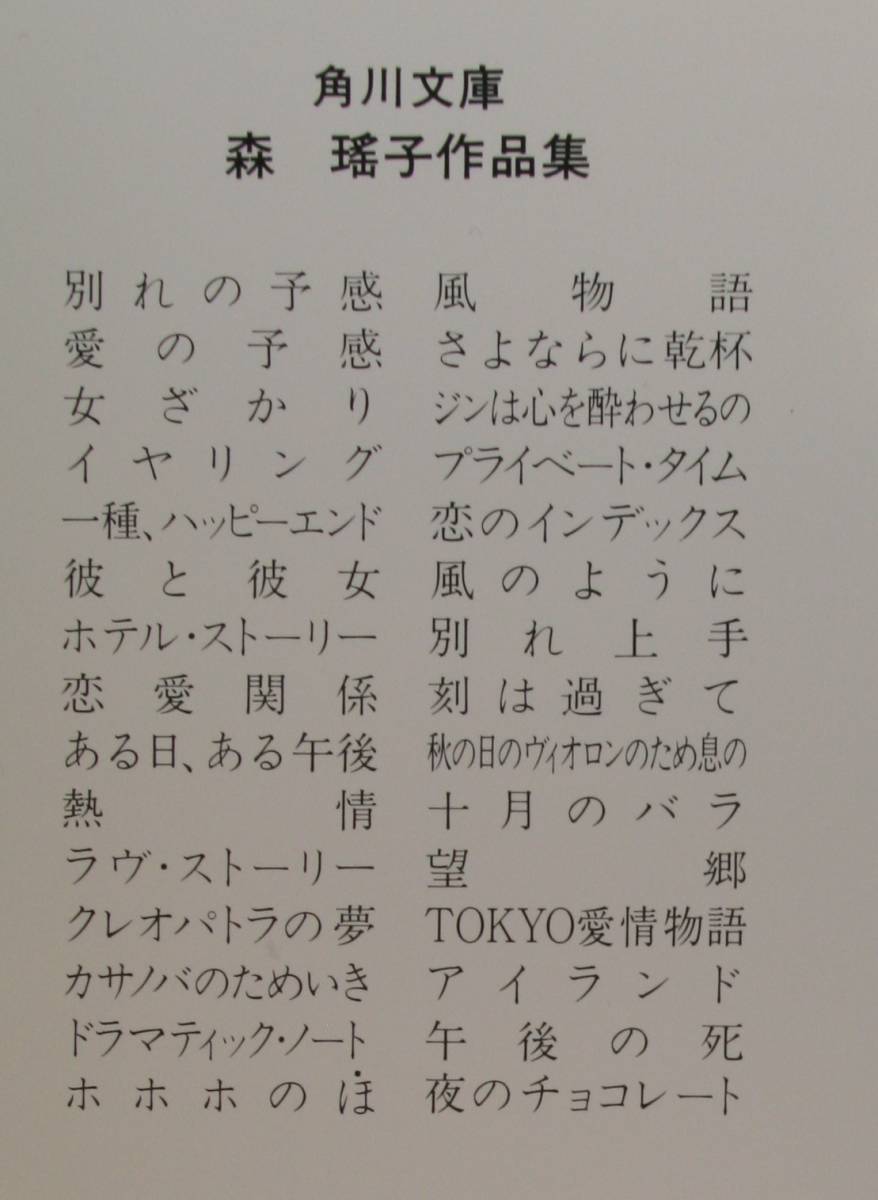 角川文庫
森 瑤子作品集
別れの予感
愛の予感
女ざかり
イヤリング
一種、ハッピーエンド
彼と彼女
ホテル・ストーリー
恋愛関係
ある日、ある午後
熱情
ラヴ・ストーリー
クレオパトラの夢
カサノバのためいき
ドラマティック・ノート
ホホホのほ
風物語
さよならに乾杯
ジンは心を酔わせるの
プライベート・タイム
恋のインデックス
風のように
別れ上手
刻は過ぎて
秋の日のヴィオロンのため息の
十月のバラ
望郷
TOKYO愛情物語
アイランド
午後の死
夜のチョコレート